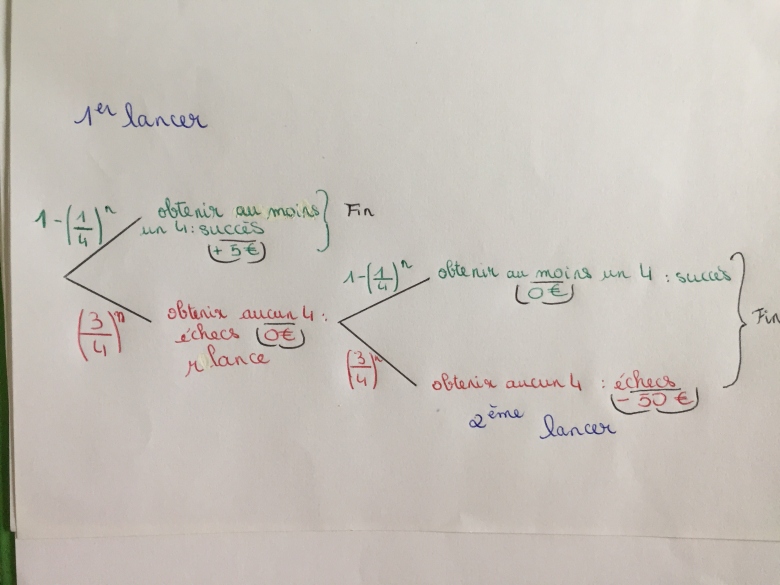 1er lancer
1-(1/4)^n
obtenir au moins
un 4 : succès
+5€
Fin
(3/4)^n
obtenir aucun 4 :
échecs 0€
r lance
1-(1/4)^n
obtenir au moins un 4 : succès
0€
Fin
(3/4)^n
obtenir aucun 4 : échecs
-50 €
2ème lancer